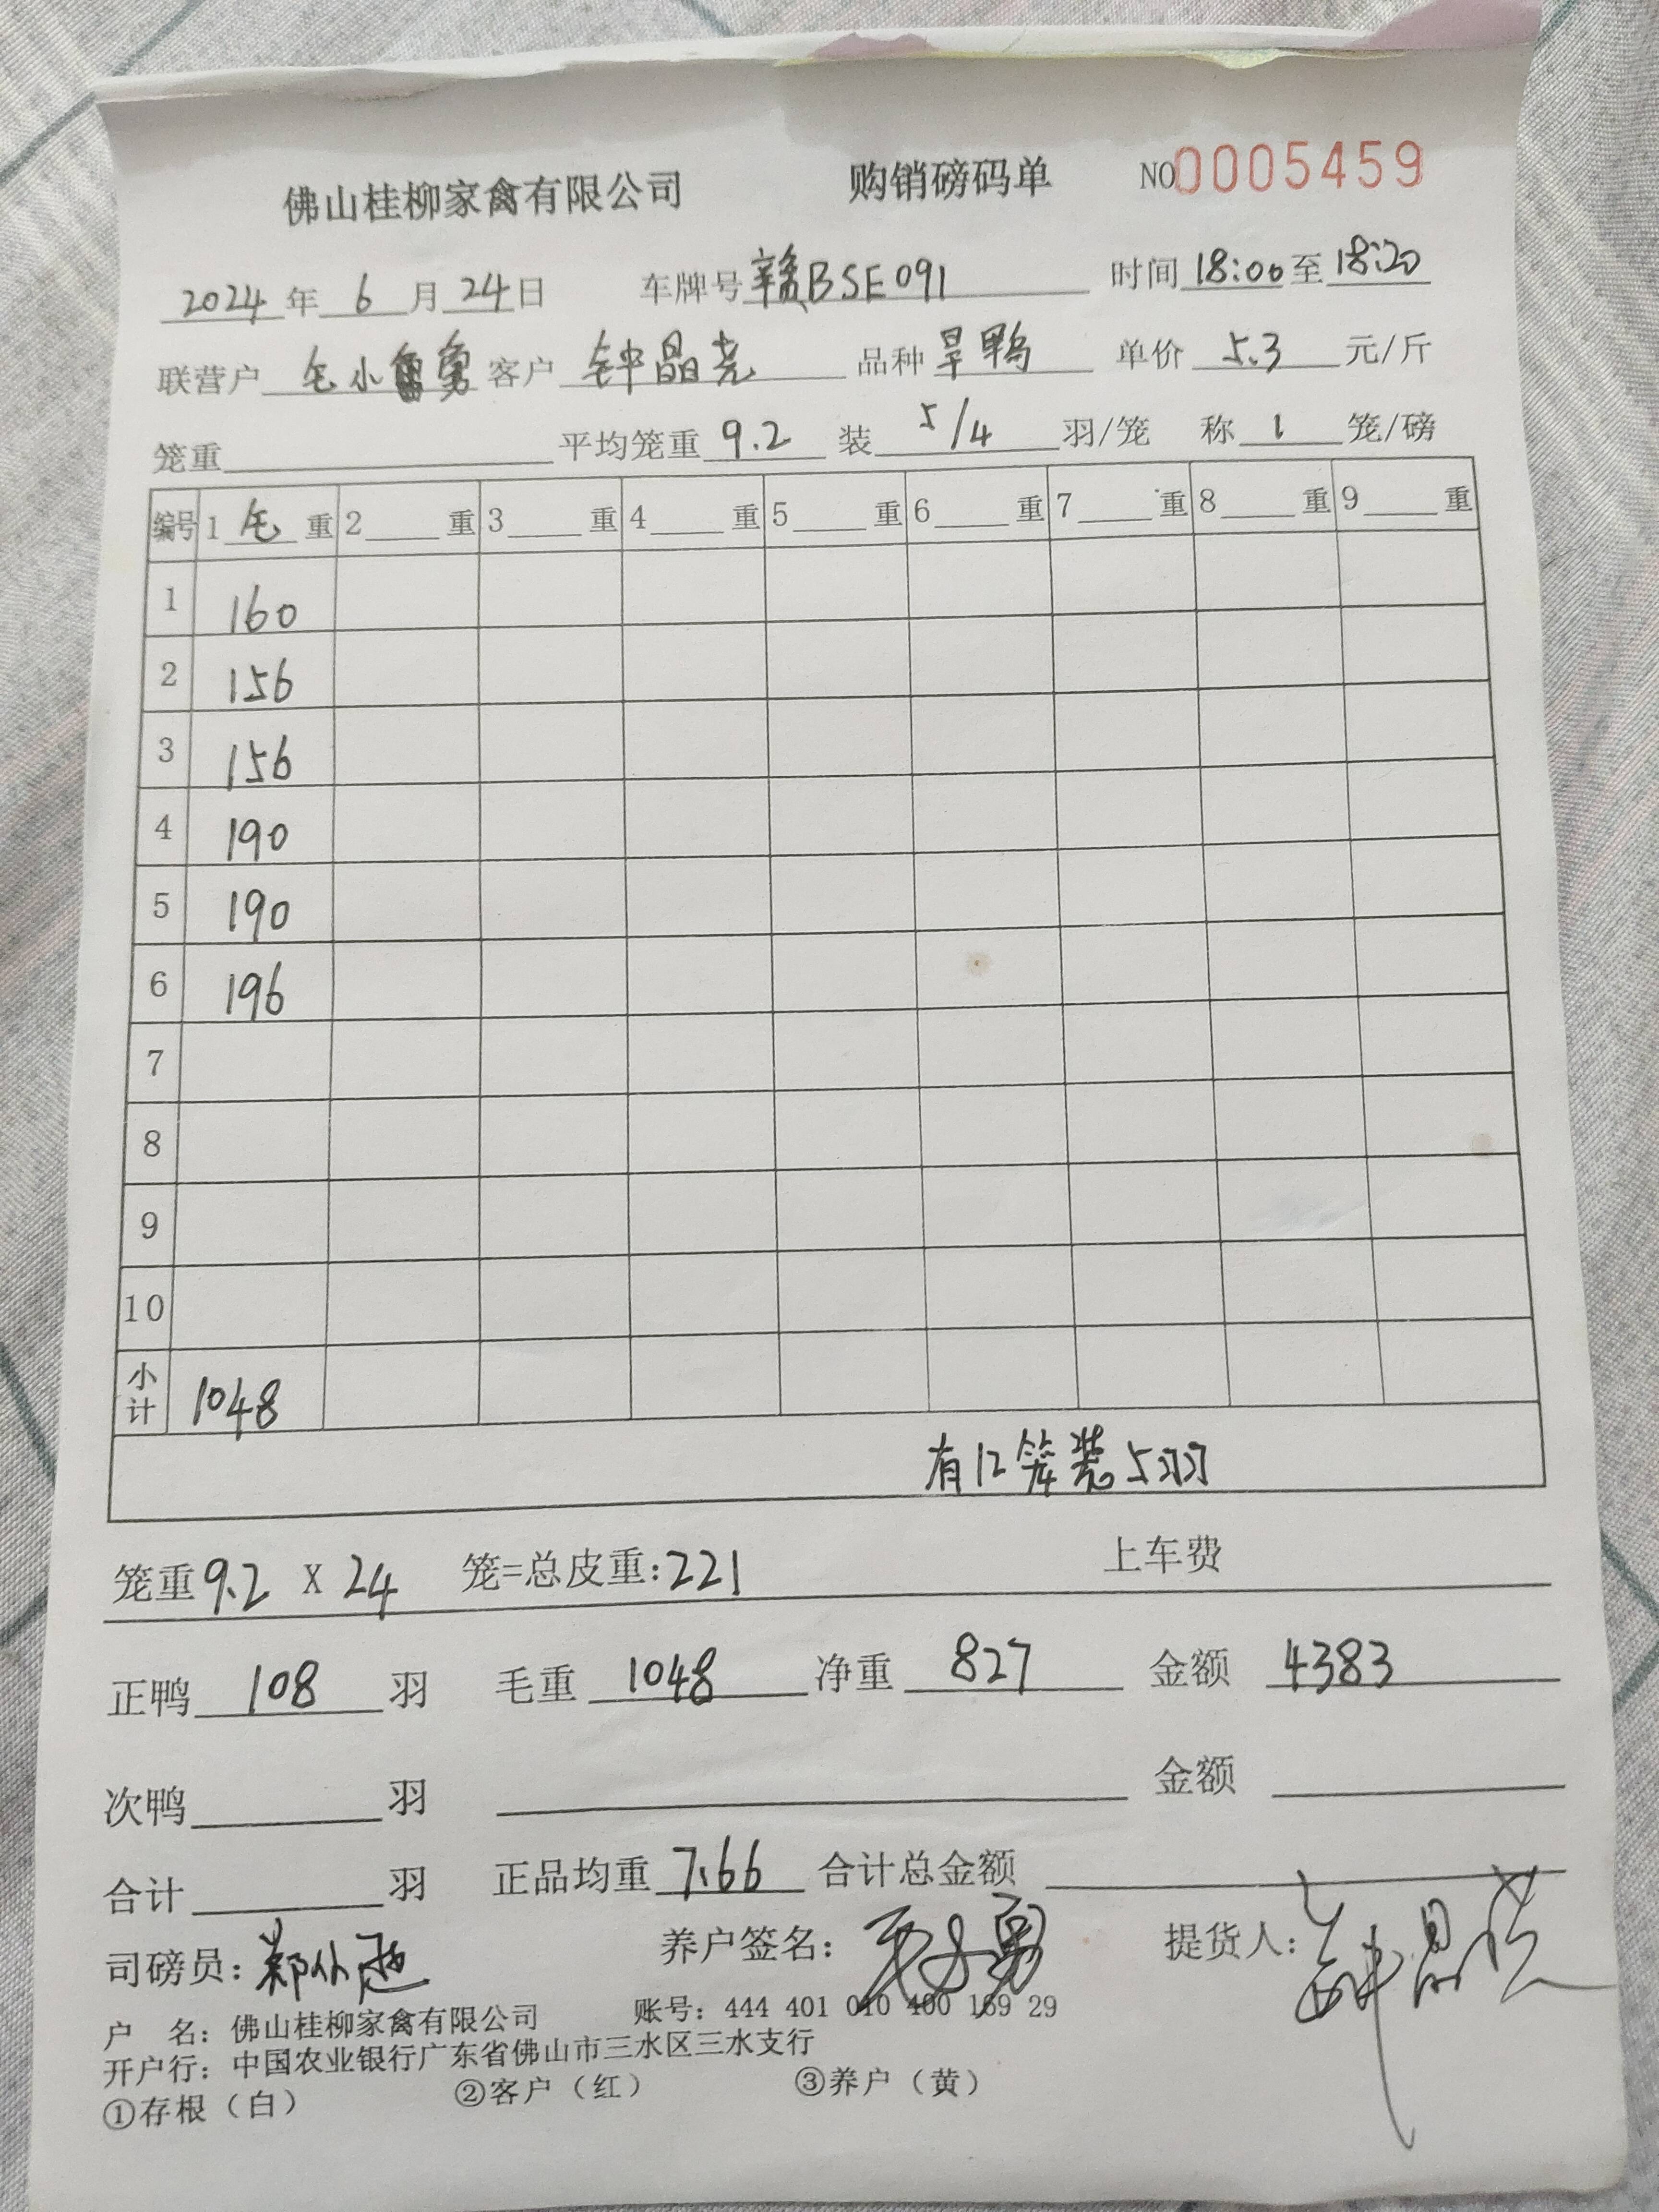 佛山桂柳家禽有限公司 购销磅码单 NO0005459
2024年6月24日 车牌号 赣BSE091 时间 18:00至18:20
联营户 毛小勇 客户 钟晶尧 品种 旱鸭 单价 5.3 元/斤
笼重 平均笼重 9.2 装 5/4 羽/笼 称 1 笼/磅
编号 1 毛 重 2 重 3 重 4 重 5 重 6 重 7 重 8 重 9 重
1 160
2 156
3 156
4 190
5 190
6 196
7
8
9
10
小计 1048
有12笼装5羽
笼重 9.2 X 24 笼=总皮重:221 上车费
正鸭 108 羽 毛重 1048 净重 827 金额 4383
次鸭 羽 金额
合计 羽 正品均重 7.66 合计总金额
司磅员: 养户签名: 毛小勇 提货人: 钟晶尧
户 名: 佛山桂柳家禽有限公司 账号: 444 401 010 400 169 29
开户行: 中国农业银行广东省佛山市三水区三水支行
①存根（白） ②客户（红） ③养户（黄）